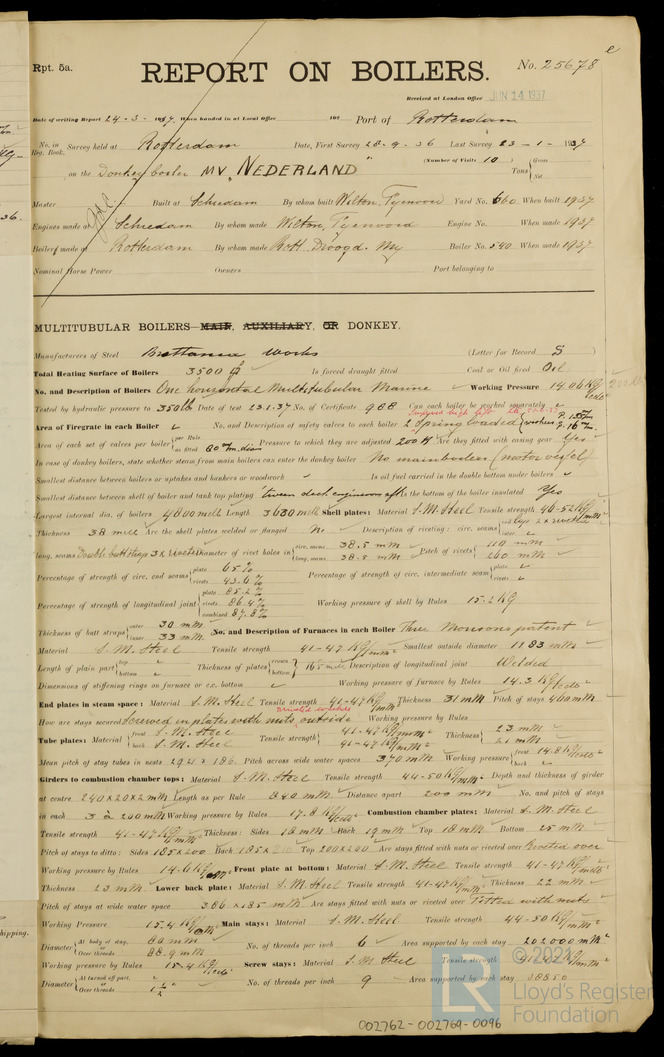 Rpt. 5a.
REPORT ON BOILERS.
No. 25678
Received at London Office JUN 14 1937
Date of writing Report 24-3-1937. When handed in at Local Office 193 Port of Rotterdam
No. in Reg. Book. Survey held at Rotterdam Date, First Survey 28-9-36 Last Survey 23-1-1937
on the Donkey boiler MV „NEDERLAND" (Number of Visits 10) Tons Gross Net
Master Built at Schiedam By whom built Wilton, Fyenoord Yard No. 660 When built 1937
Engines made at Schiedam By whom made Wilton, Fyenoord Engine No. When made 1937
Boilers made at Rotterdam By whom made Rott. Droogd. My Boiler No. 540 When made 1937
Nominal Horse Power Owners Port belonging to
MULTITUBULAR BOILERS—MAIN, AUXILIARY, OR DONKEY.
Manufacturers of Steel Works (Letter for Record S)
Total Heating Surface of Boilers 3500 Is forced draught fitted Coal or Oil fired Oil
No. and Description of Boilers One horizontal Multitubular Marine Working Pressure 14.06 KG
Tested by hydraulic pressure to 350 lb Date of test 23.1.37 No. of Certificate 988 Can each boiler be worked separately
Area of Firegrate in each Boiler No. and Description of safety valves to each boiler 2 Spring loaded
Area of each set of valves per boiler per Rule as fitted Pressure to which they are adjusted 200 Are they fitted with easing gear Yes
In case of donkey boilers, state whether steam from main boilers can enter the donkey boiler No main boilers (motor vessel)
Smallest distance between boilers or uptakes and bunkers or woodwork Is oil fuel carried in the double bottom under boilers
Smallest distance between shell of boiler and tank top plating Is the bottom of the boiler insulated Yes
Largest internal dia. of boilers 4800 mm Length Shell plates: Material S. M. Steel Tensile strength
Thickness 38 mm Are the shell plates welded or flanged No Description of riveting: circ. seams
long. seams Diameter of rivet holes in circ. seams 38.5 mm long. seams 38.5 mm Pitch of rivets 110 mm 260 mm
Percentage of strength of circ. end seams plate 65% rivets 43.6% Percentage of strength of circ. intermediate seam plate rivets
Percentage of strength of longitudinal joint plate 85.2% rivets 86.4% combined 87.3% Working pressure of shell by Rules 15.2 KG
Thickness of butt straps outer 30 mm inner 33 mm No. and Description of Furnaces in each Boiler Three Morisons patent
Material S. M. Steel Tensile strength 41-47 KG/mm² Smallest outside diameter 1183 mm
Length of plain part top bottom Thickness of plates crown bottom Description of longitudinal joint Welded
Dimensions of stiffening rings on furnace or c.c. bottom Working pressure of furnace by Rules 14.3 KG
End plates in steam space: Material S. M. Steel Tensile strength 41-47 KG/mm² Thickness 31 mm Pitch of stays
How are stays secured Screwed in plates with nuts outside Working pressure by Rules
Tube plates: Material front S. M. Steel back S. M. Steel Tensile strength 41-47 KG/mm² 41-47 KG/mm² Thickness 23 mm 21 mm
Mean pitch of stay tubes in nests 294 x 186. Pitch across wide water spaces 370 mm Working pressure front 14.8 KG back
Girders to combustion chamber tops: Material S. M. Steel Tensile strength 44-50 KG/mm² Depth and thickness of girder
at centre 240x20x2 mm Length as per Rule 840 mm Distance apart 200 mm No. and pitch of stays
in each 3 à 200 mm Working pressure by Rules 17.8 KG Combustion chamber plates: Material S. M. Steel
Tensile strength 41-47 KG/mm² Thickness: Sides 18 mm Back 19 mm Top 18 mm Bottom 25 mm
Pitch of stays to ditto: Sides 185x200 Back Top 200x200 Are stays fitted with nuts or riveted over Riveted over
Working pressure by Rules 14.6 KG Front plate at bottom: Material S. M. Steel Tensile strength 41-47 KG
Thickness 23 mm Lower back plate: Material S. M. Steel Tensile strength 41-47 KG/mm² Thickness 22 mm
Pitch of stays at wide water space 386 x 185 mm Are stays fitted with nuts or riveted over Fitted with nuts
Working Pressure 15.4 KG Main stays: Material S. M. Steel Tensile strength 44-50 KG/mm²
Diameter At body of stay, or Over threads No. of threads per inch 6 Area supported by each stay 202000 mm²
Working pressure by Rules 15.4 KG Screw stays: Material S. M. Steel Tensile strength 41-47 KG/mm²
Diameter At turned off part, or Over threads No. of threads per inch 9 Area supported by each stay
002762-002769-0096
© 2021
LR
Lloyd's Register
Foundation